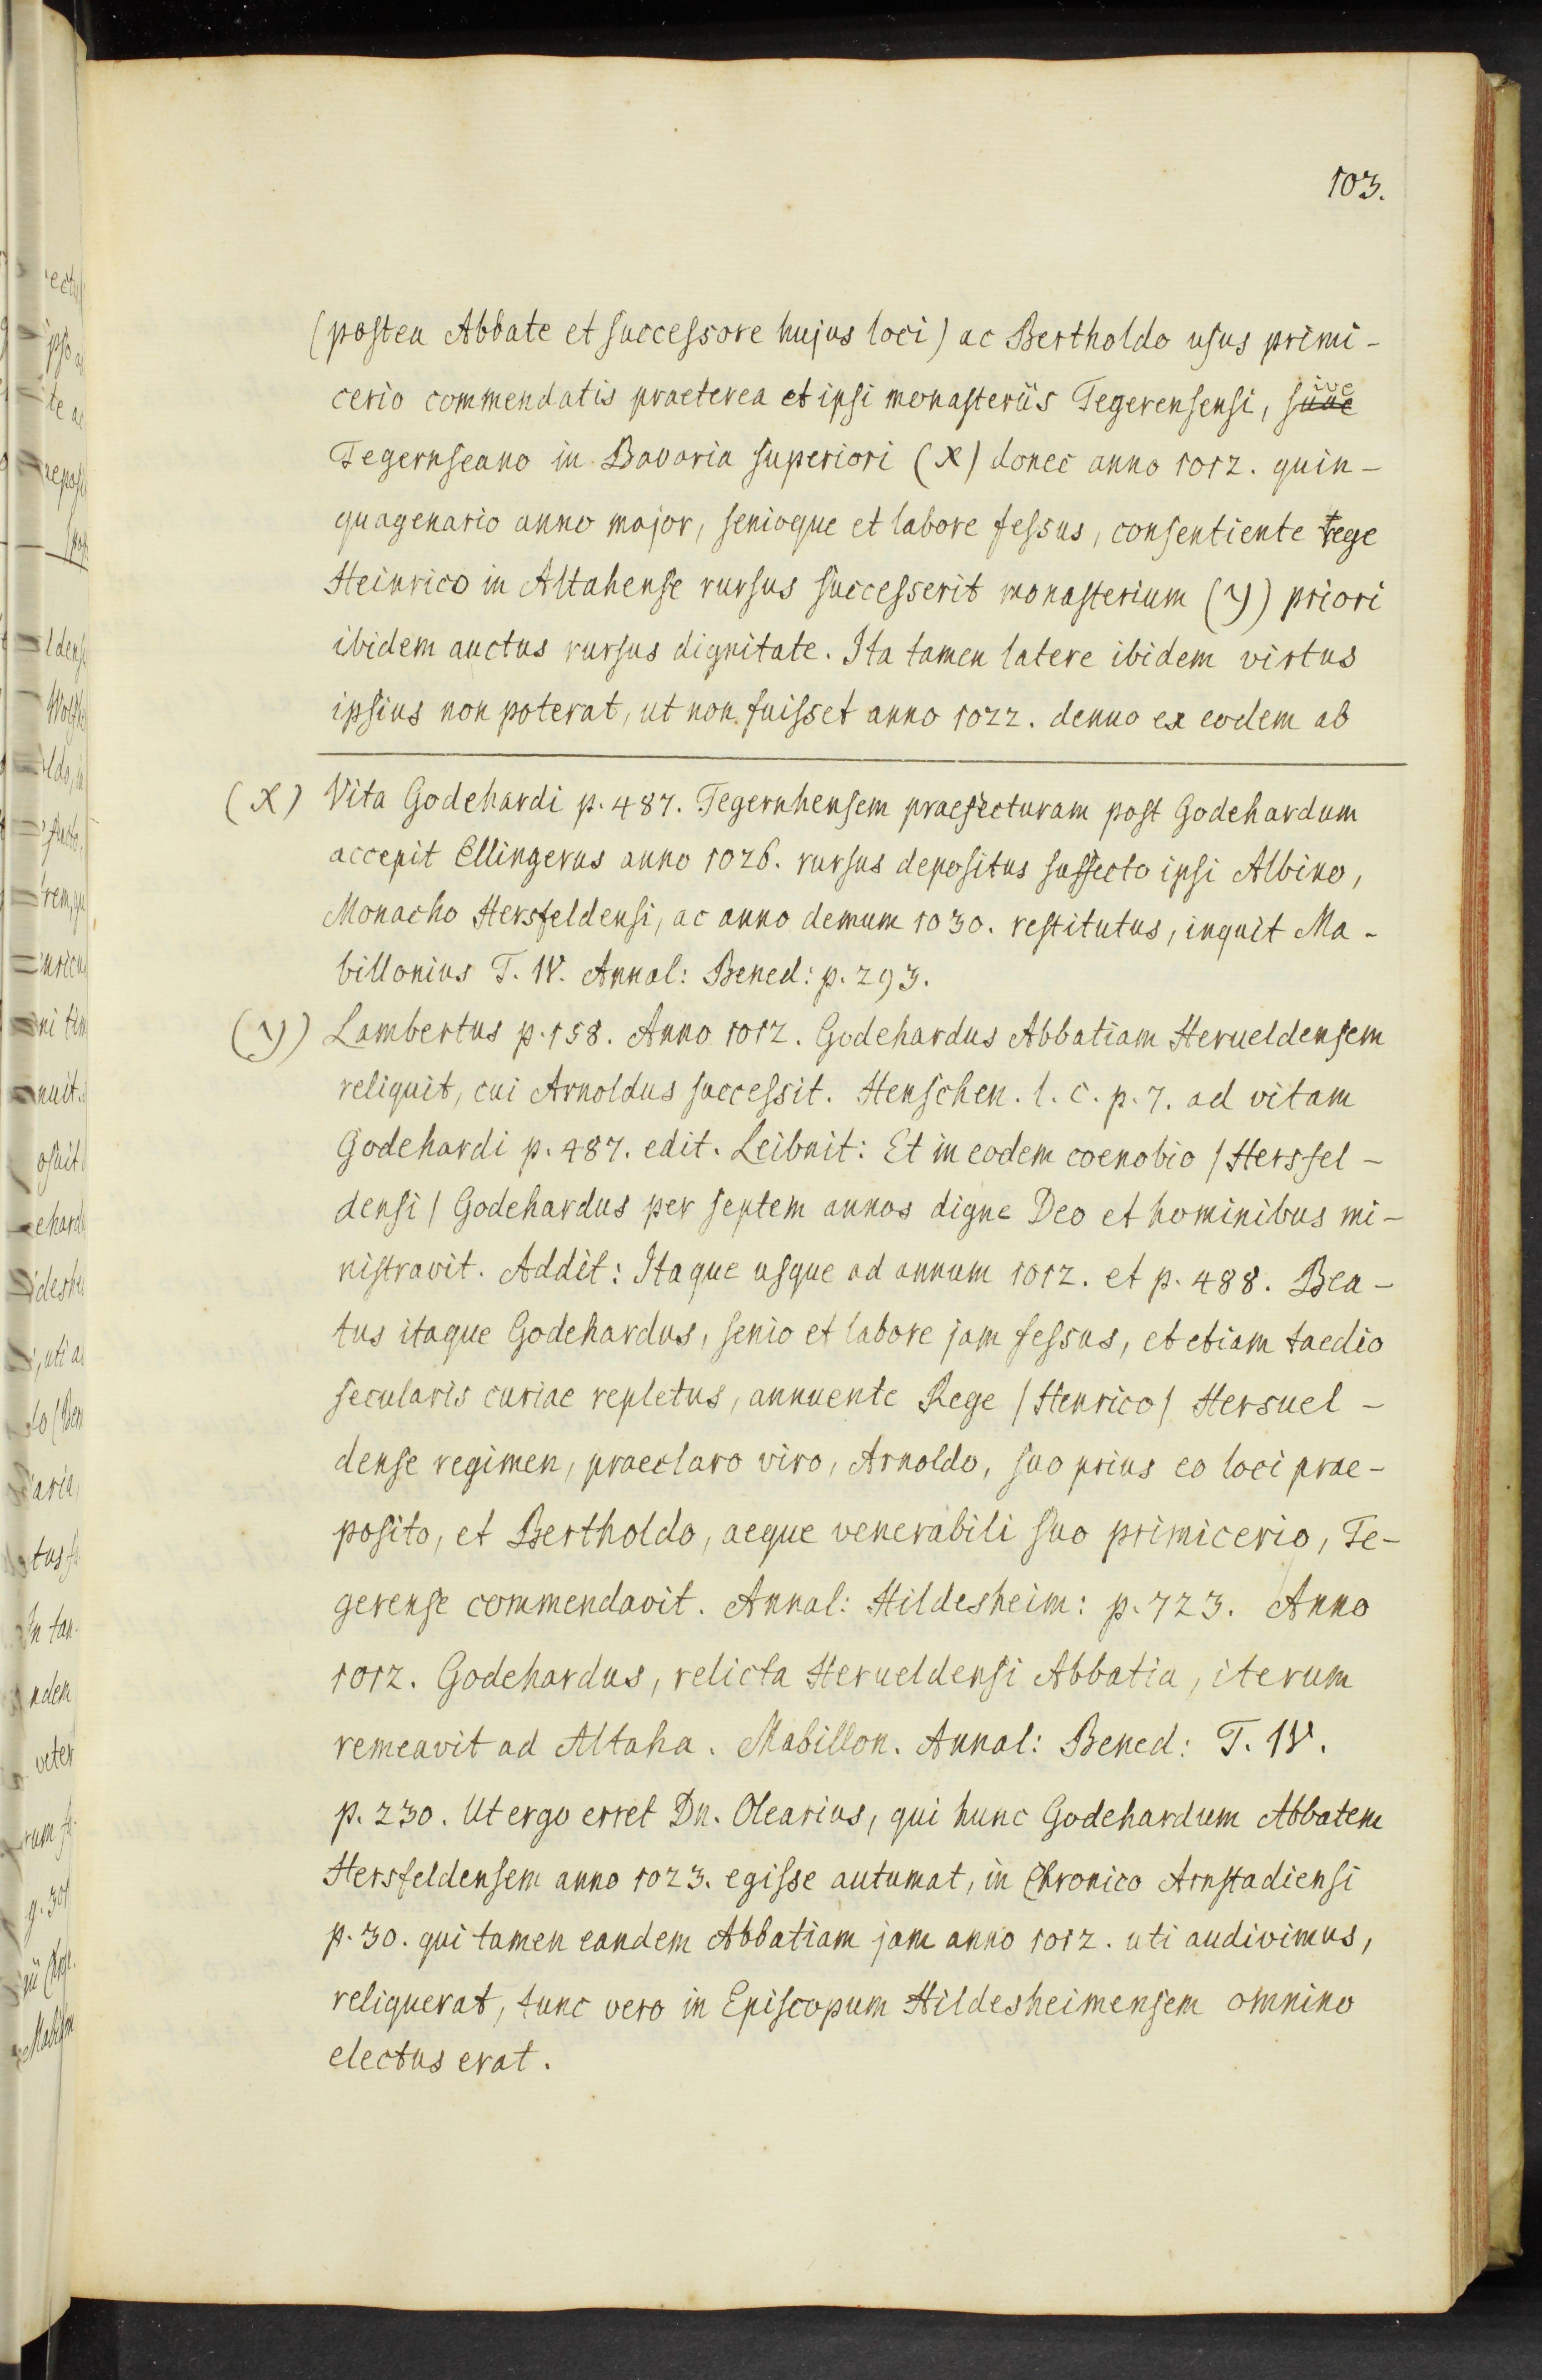 103.
(postea Abbate et successore hujus loci) ac Bertholdo usus primi-
cerio commendatis praeterea et ipsi monasteriis Tegerensensi, sive
Tegernseano in Bavaria superiori (x) donec anno 1012. quin-
quagenario anno major, senioque et labore fessus, consentiente rege
Heinrico in Altahense rursus successerit monasterium (y) priori
ibidem auctus rursus dignitate. Ita tamen latere ibidem virtus
ipsius non poterat, ut non fuisset anno 1022. denuo ex eodem ab
(x) Vita Godehardi p. 487. Tegernhensem praefecturam post Godehardum
accepit Ellingerus anno 1026. rursus depositus suffecto ipsi Albino,
Monacho Hersfeldensi, ac anno demum 1030. restitutus, inquit Ma-
billonius T. IV. Annal: Bened: p. 293.
(y) Lambertus p. 158. Anno 1012. Godehardus Abbatiam Herueldensem
reliquit, cui Arnoldus successit. Henschen. l. c. p. 7. ad vitam
Godehardi p. 487. edit. Leibnit: Et in eodem coenobio / Hersfel-
densi / Godehardus per septem annos digne Deo et hominibus mi-
nistravit. Addit: Itaque usque ad annum 1012. et p. 488. Bea-
tus itaque Godehardus, senio et labore jam fessus, et etiam taedio
secularis curiae repletus, annuente Rege / Henrico / Hersuel-
dense regimen, praeclaro viro, Arnoldo, suo prius eo loci prae-
posito, et Bertholdo, aeque venerabili suo primicerio, Te-
gerense commendavit. Annal: Hildesheim: p. 723. Anno
1012. Godehardus, relicta Herueldensi Abbatia, iterum
remeavit ad Altaha. Mabillon. Annal: Bened: T. IV.
p. 230. Ut ergo erret Dn. Olearius, qui hunc Godehardum Abbatem
Hersfeldensem anno 1023. egisse autumat, in Chronico Arnstadiensi
p. 30. qui tamen eandem Abbatiam jam anno 1012. uti audivimus,
reliquerat, tunc vero in Episcopum Hildesheimensem omnino
electus erat.